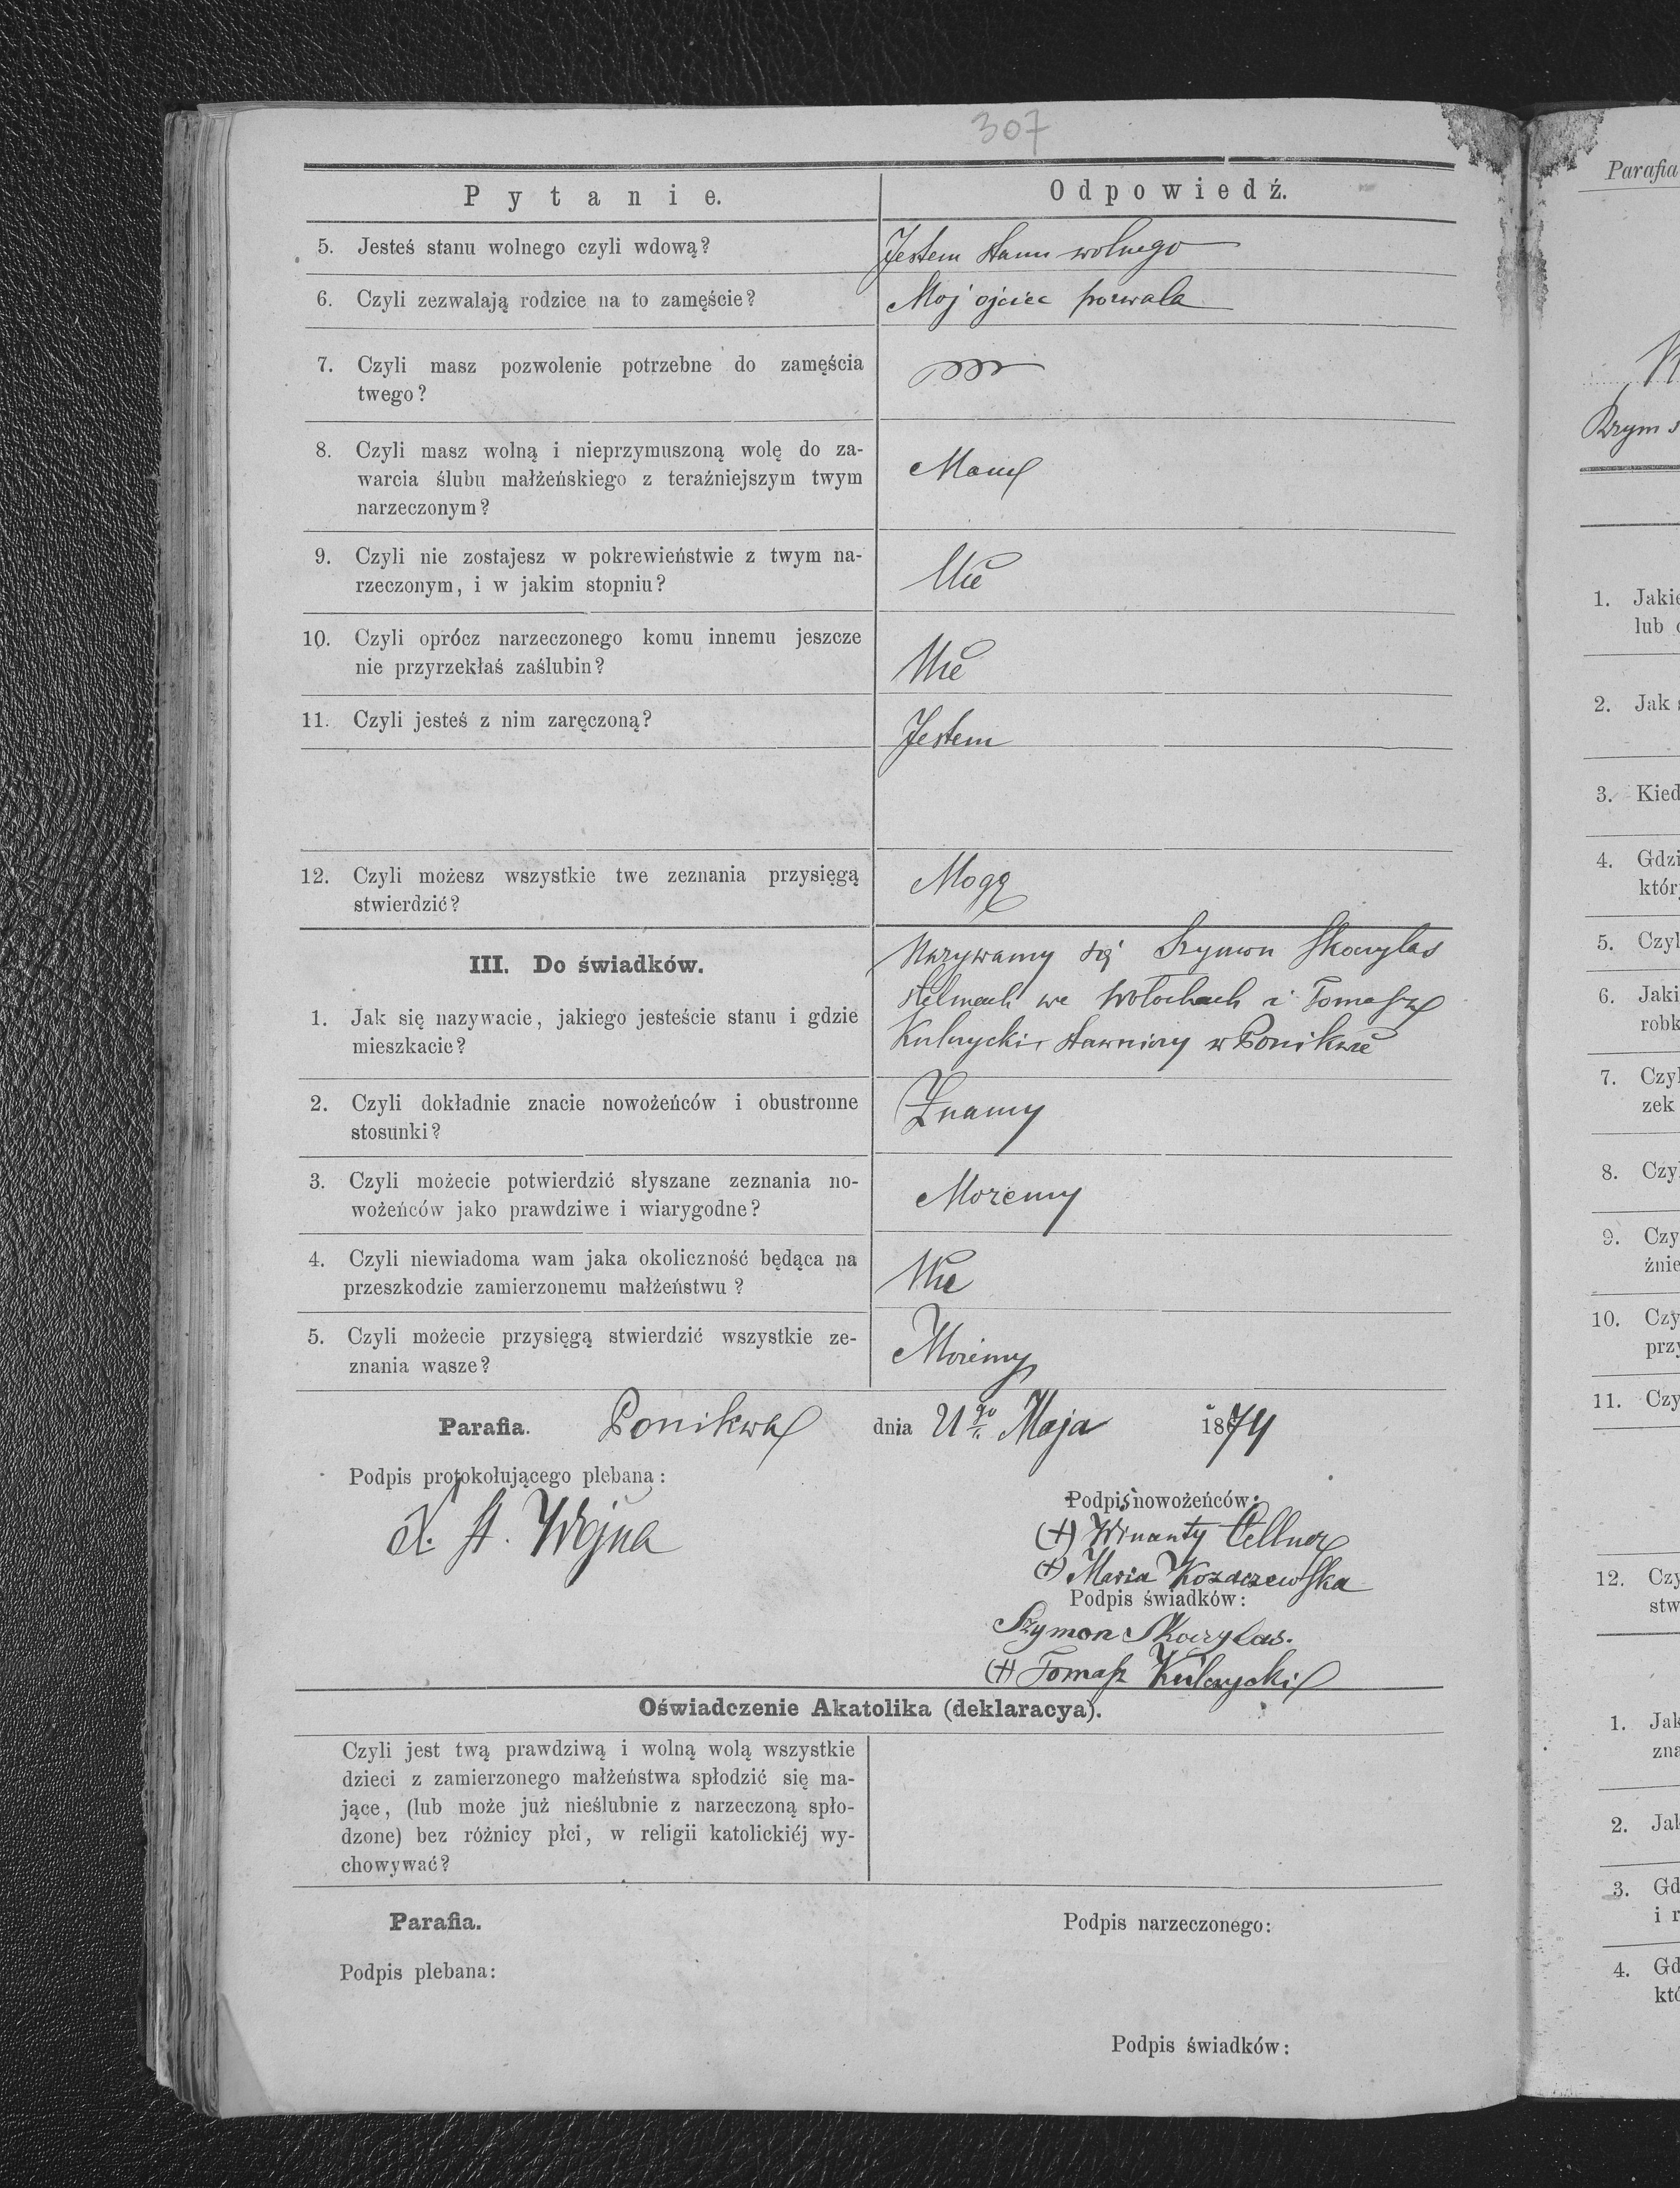 307
Pytanie.
Odpowiedź.
5. Jesteś stanu wolnego czyli wdową?
Jestem stanu wolnego
6. Czyli zezwalają rodzice na to zamęście?
Moj ojciec pozwala
7. Czyli masz pozwolenie potrzebne do zamęścia
twego?
8. Czyli masz wolną i nieprzymuszoną wolę do za-
warcia ślubu małżeńskiego z teraźniejszym twym
narzeczonym?
Mam
9. Czyli nie zostajesz w pokrewieństwie z twym na-
rzeczonym, i w jakim stopniu?
Nie
10. Czyli oprócz narzeczonego komu innemu jeszcze
nie przyrzekłaś zaślubin?
Nie
11. Czyli jesteś z nim zaręczoną?
Jestem
12. Czyli możesz wszystkie twe zeznania przysięgą
stwierdzić?
Mogę
III. Do świadków.
1. Jak się nazywacie, jakiego jesteście stanu i gdzie
mieszkacie?
Nazywamy się Szymon Skorylas
stelmach we Wołochach i Tomasz
Kulczycki stawniczy w Ponikwie
2. Czyli dokładnie znacie nowożeńców i obustronne
stosunki?
Znamy
3. Czyli możecie potwierdzić słyszane zeznania no-
wożeńców jako prawdziwe i wiarygodne?
Mozemy
4. Czyli niewiadoma wam jaka okoliczność będąca na
przeszkodzie zamierzonemu małżeństwu?
Nie
5. Czyli możecie przysięgą stwierdzić wszystkie ze-
znania wasze?
Możemy
Parafia. Ponikwa dnia 21go Maja 1874
Podpis protokołującego plebana:
X. St. Wojna
Podpis nowożeńców:
(+) Winanty Cellner
(+) Maria Kozaczewska
Podpis świadków:
Szymon Skorylas.
(+) Tomasz Kulczycki
Oświadczenie Akatolika (deklaracya).
Czyli jest twą prawdziwą i wolną wolą wszystkie
dzieci z zamierzonego małżeństwa spłodzić się ma-
jące, (lub może już nieślubnie z narzeczoną spło-
dzone) bez różnicy płci, w religii katolickiéj wy-
chowywać?
Parafia.
Podpis plebana:
Podpis narzeczonego:
Podpis świadków:
Parafia
1. Jakie
lub
2. Jak
3. Kied
4. Gdzi
któr
5. Czyl
6. Jaki
robk
7. Czyl
zek
8. Czyl
9. Czy
źnie
10. Czy
przy
11. Czy
12. Czy
stw
1. Jak
zna
2. Jak
3. Gd
i r
4. Gd
któ